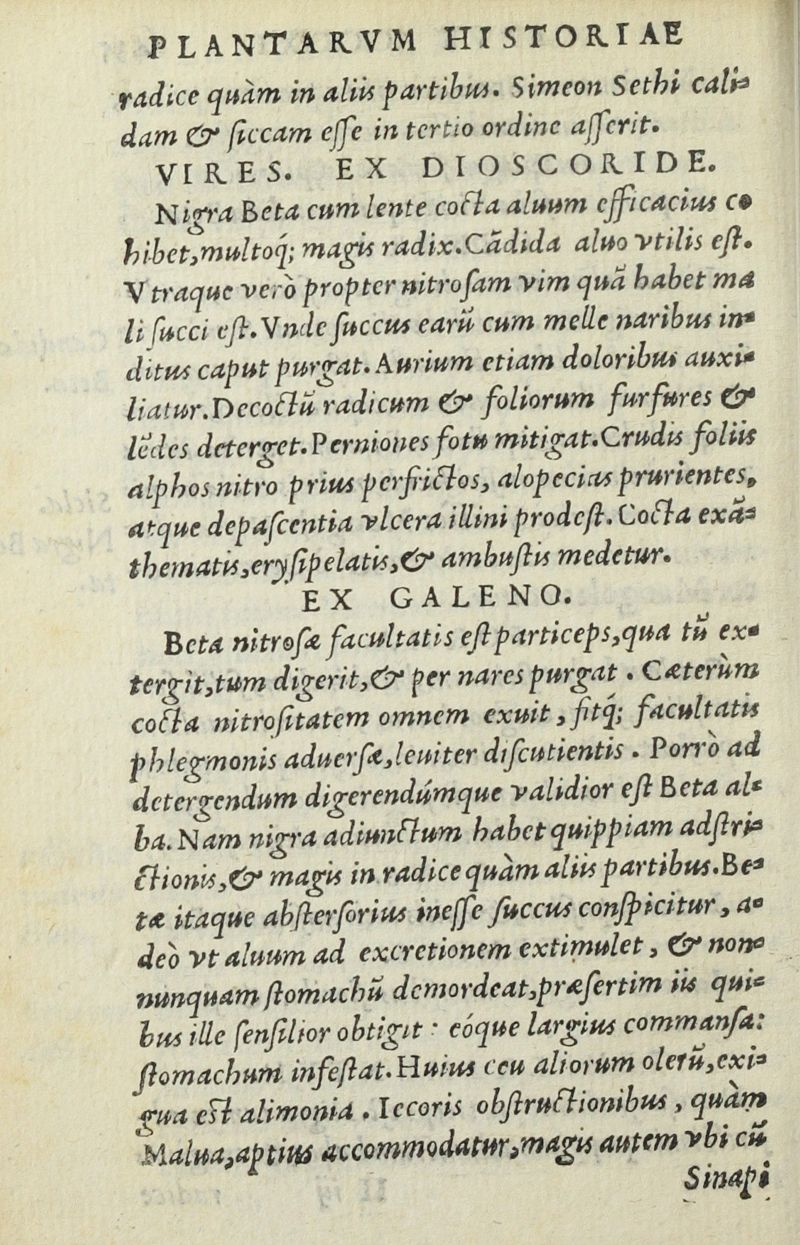 PLANTARVM HISTORIAE
radice quàm in aliis partibus. Simeon Sethi cali-
dam & siccam esse in tertio ordine asserit.
VIRES. EX DIOSCORIDE.
Nigra Beta cum lente cocta aluum efficacius co
hibet, multoq́; magis radix. Cãdida aluo vtilis est.
Vtraque verò propter nitrosam vim quã habet ma
li succi est. Vnde succus earũ cum melle naribus in-
ditus caput purgat. Aurium etiam doloribus auxi-
liatur. Decoctũ radicum & foliorum furfures &
lẽdes deterget. Perniones fotu mitigat. Crudis foliis
alphos nitro prius perfrictos, alopecias prurientes,
atque depascentia vlcera illini prodest. Cocta exã-
thematis, erysipelatis, & ambustis medetur.
EX GALENO.
Beta nitrosæ facultatis est particeps, qua tũ ex-
tergit, tum digerit, & per nares purgat. Cæterùm
cocta nitrositatem omnem exuit, fitq́; facultatis
phlegmonis aduersæ, leuiter discutientis. Porrò ad
detergendum digerendúmque validior est Beta al-
ba. Nam nigra adiunctum habet quippiam adstri-
ctionis, & magis in radice quàm aliis partibus. Be-
tæ itaque abstersorius inesse succus conspicitur, a-
deò vt aluum ad excretionem extimulet, & non-
nunquam stomachũ demordeat, præsertim iis qui-
bus ille sensilior obtigit: eóque largius commansa:
stomachum infestat. Huius ceu aliorum olerũ, exi-
gua est alimonia. Iecoris obstructionibus, quàm
Malua, aptius accommodatur, magis autem vbi cũ
Sinapi